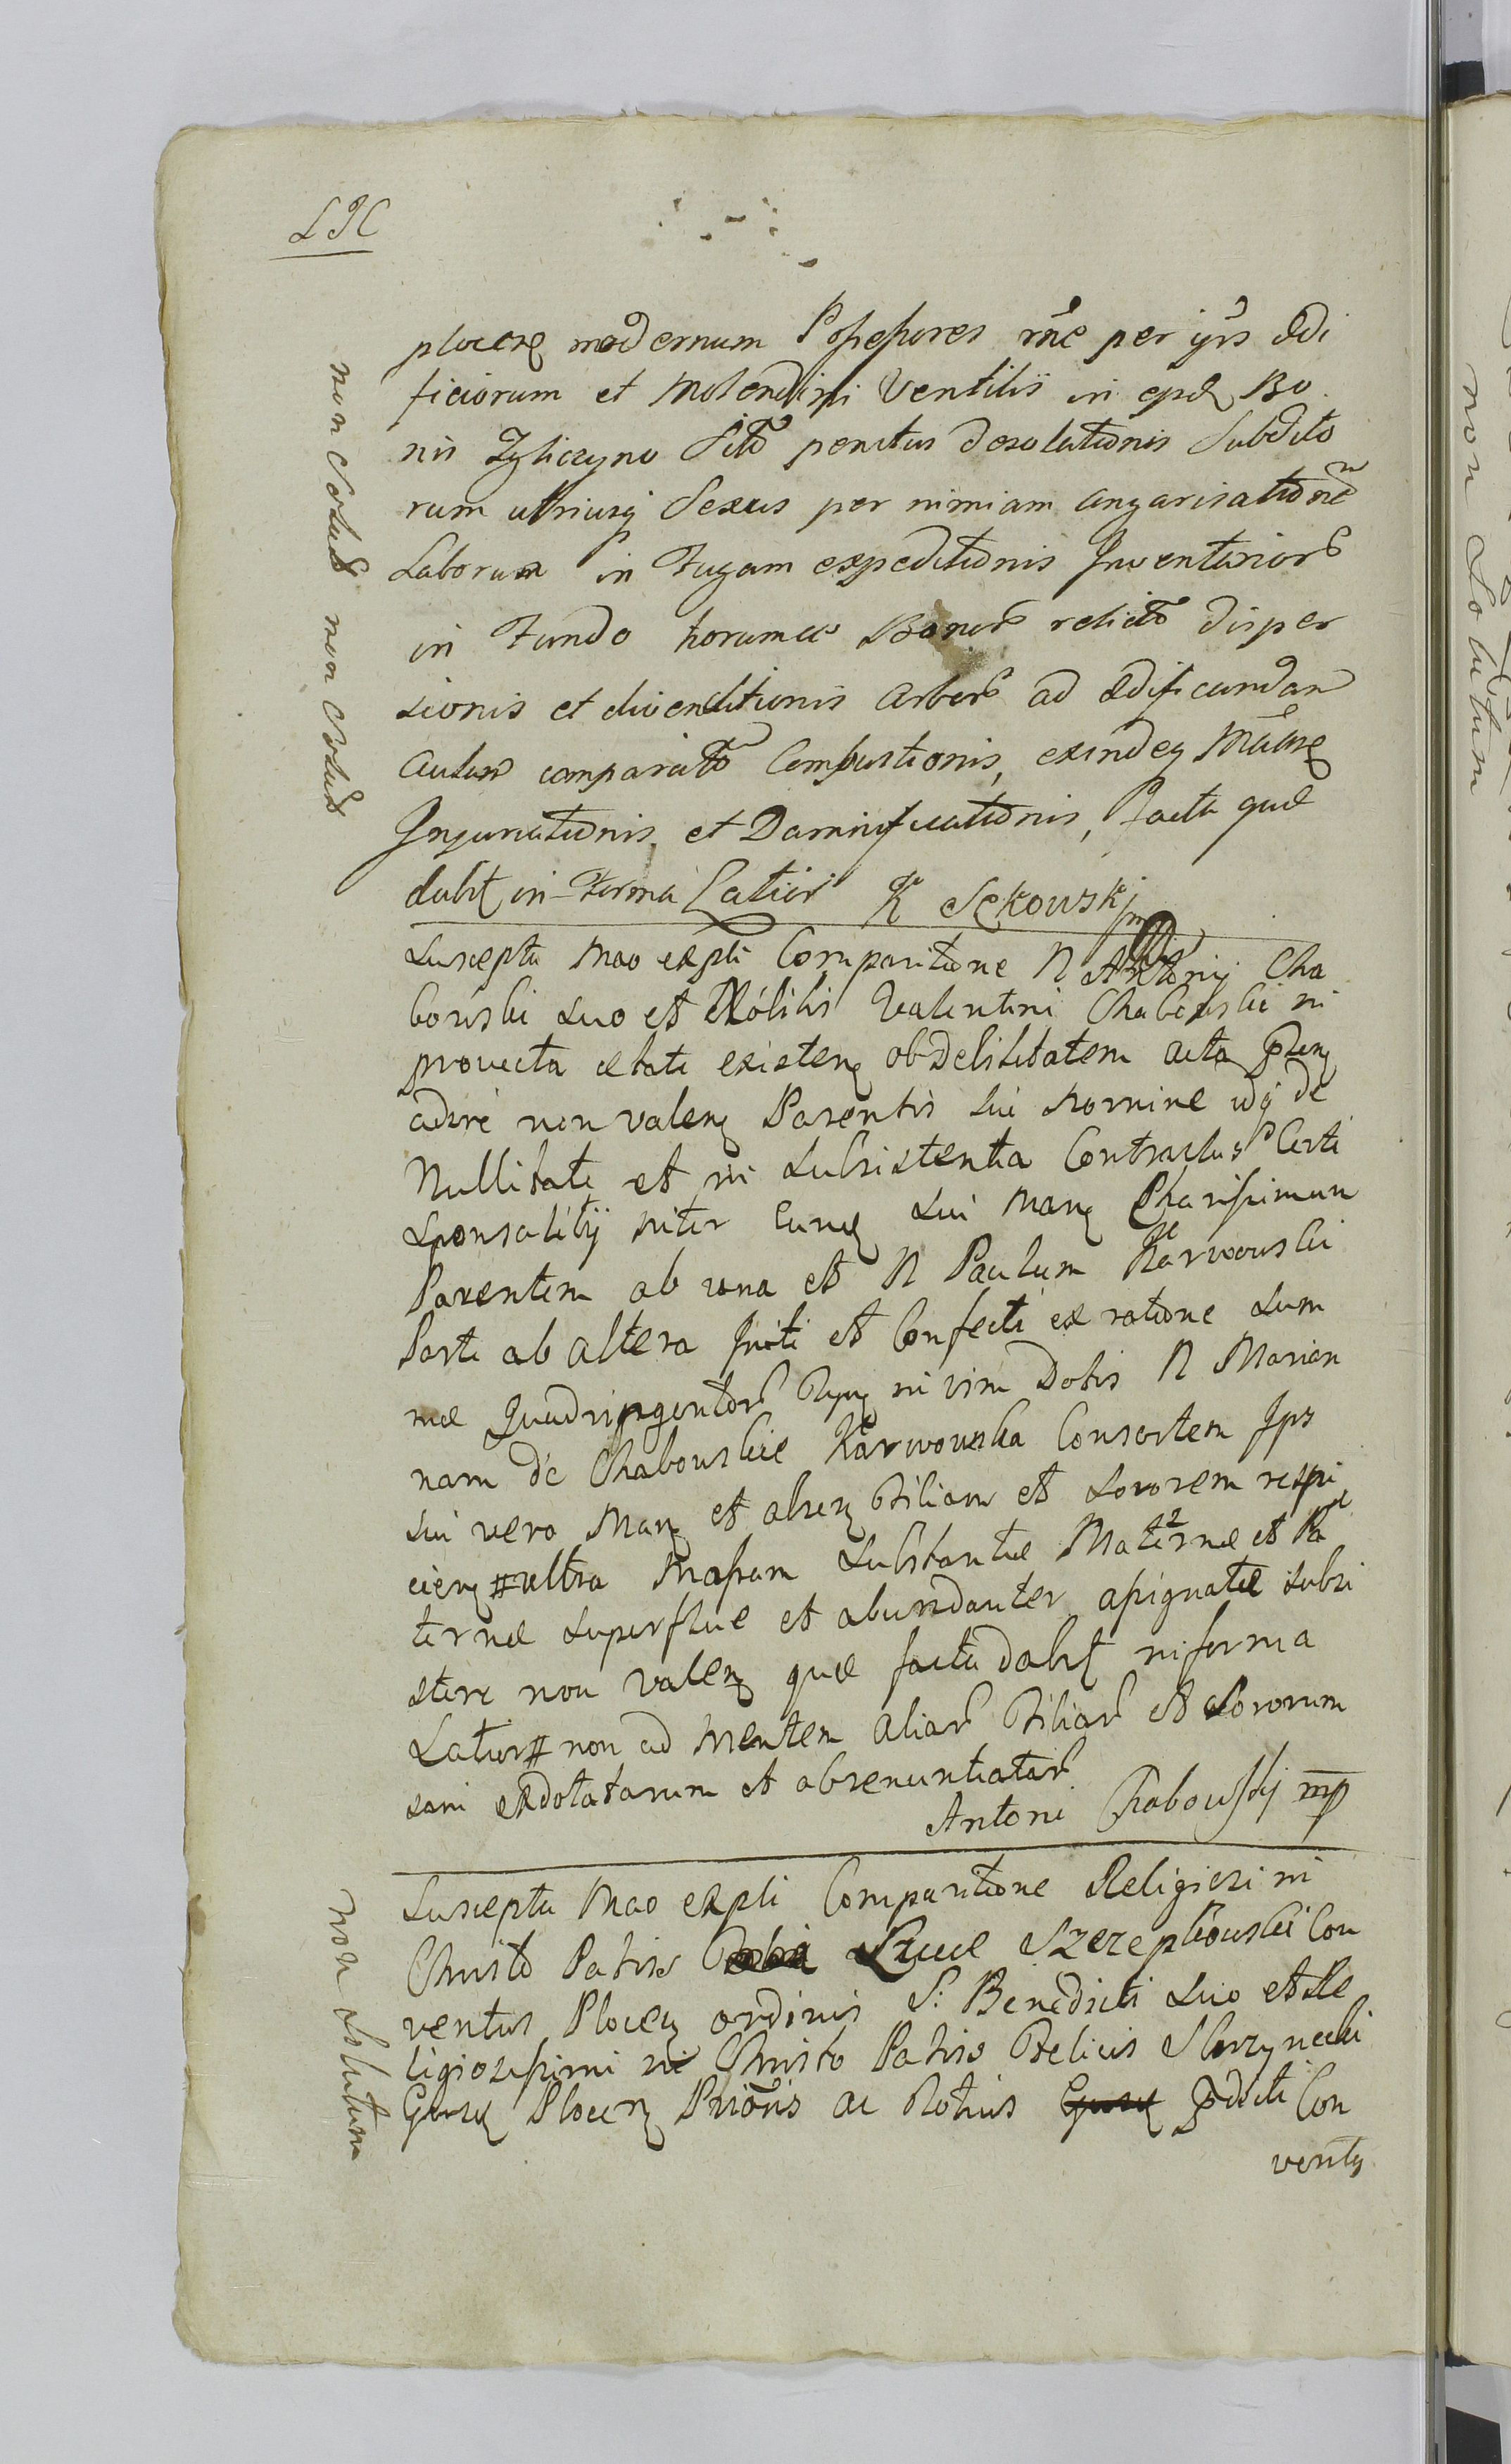 LIC
plocens modernum Possessores rne per ipos Ædi
ficiorum et Molendini Ventilis in epd Bo
nis Zyliczyno Sito penitus desolationis Subdito
rum utriusq Sexus per nimiam angarisatione
Laborum in Fugam expeditionis Inventarior
in Fundo horumce Bonor relicto disper
sionis et divenditionis arbor ad ædificandam
aulam comparato Combustionis, exindeq
Injuriationis, et Damnificationis, facta quæ
dabit in Forma Latiori K Sękowski mp
non solut non solut
Suscepta Mao expli Comparitione N Antonij Cha
bowski suo et Nobilis Valentini Chabowski in
provecta ætate existen ob debilitatem acta præn
adire non valen Parentis sui Nomine idq de
Nullitate et in subsistentia Contractus Certi
Sponsalitij inter eund sui Man Charissimum
Parentem ab una et N Paulum Karwowski
Parte ab altera Initi et Confecti ex ratione Sum
mæ Quadringentor in vim Dotis N Marian
nam de Chabowskie Karwowska Consortem Ips
sui vero Man et absen Filiam et Sororem respi
cien # ultra Massam Substantiæ Maternæ et Pa
ternæ superflue et abundanter assignatæ subsi
stere non valen quæ facta dabit in forma
Latiori # non ad Mentem aliar Filiar et Sororum
sam exdotatarum et abrenuntiatar
Antoni Chabowskij mp
Suscepta Mao expli Comparitione Religiosi in
Christo Patris Lucæ Szczepkowski Con
ventus Plocen ordinis S: Benedicti suo et Re
ligiosissimi in Christo Patris Felicis Skorzynecki
Plocen Prioris ac Totius prædicti Con
ventus
non solutum
non Solutum